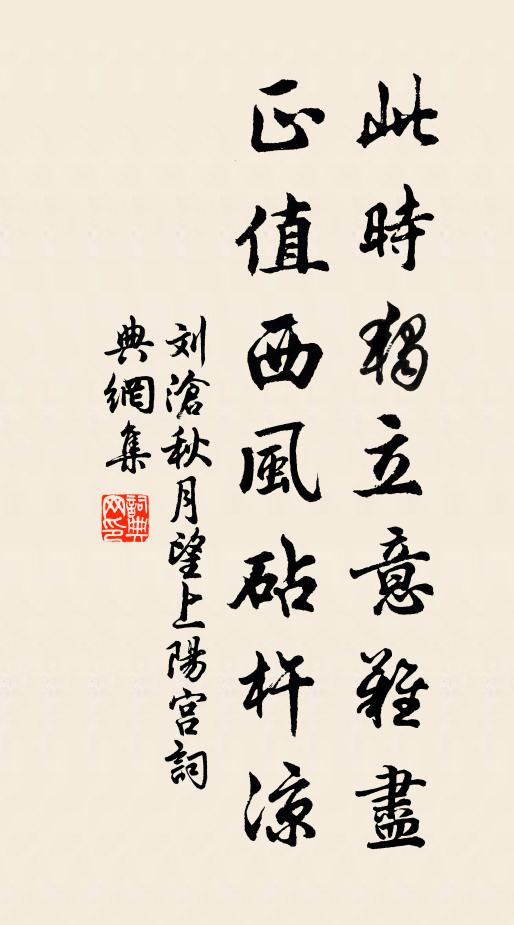 此時獨立意難盡
正值西風砧杵涼
刘滄秋月望上陽宮詞
典網集
詞典網印